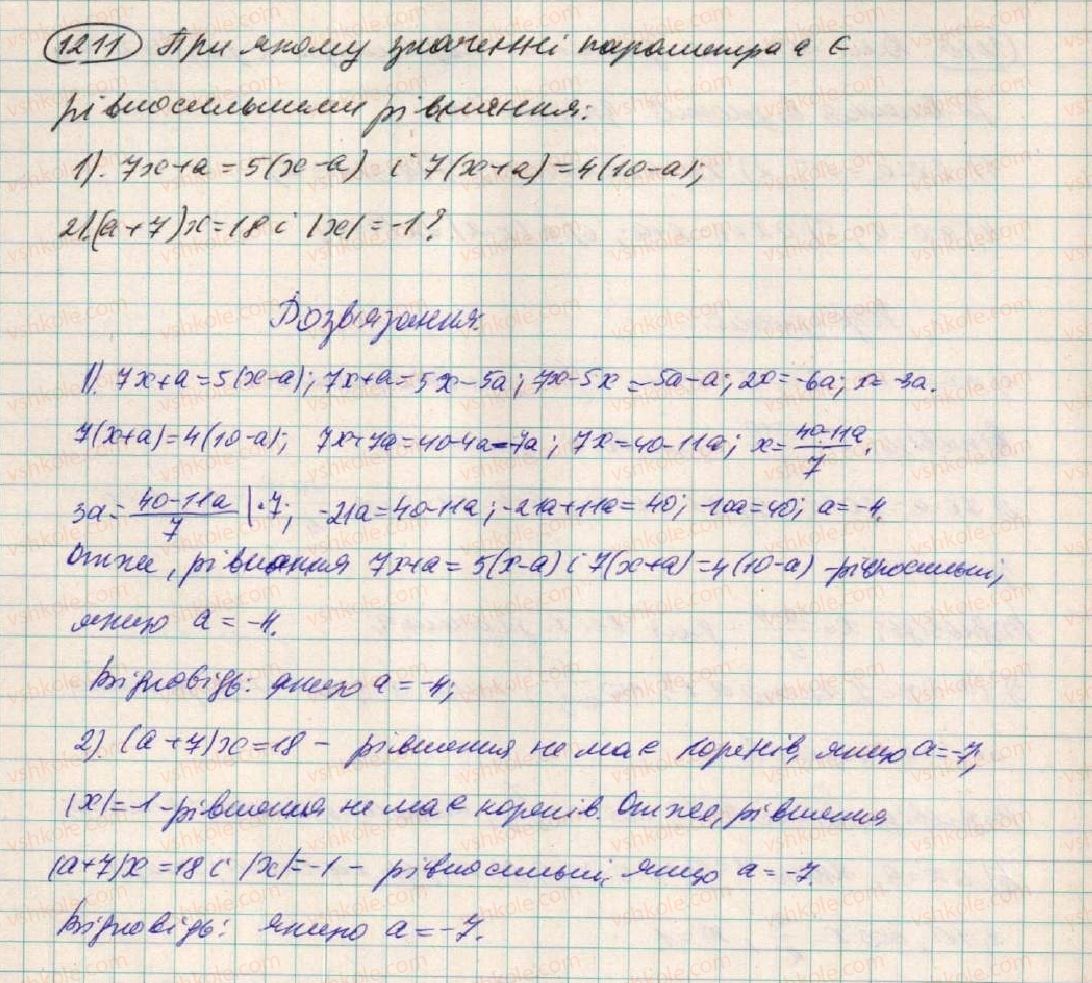 1211 При якому значенні параметра a є
рівносильними рівняння:
1). 7x+a=5(x-a) і 7(x+a)=4(10-a);
2).(a+7)x=18 і |x|=-1?
Розв'язання:
1). 7x+a=5(x-a); 7x+a=5x-5a; 7x-5x=-5a-a; 2x=-6a; x=-3a.
7(x+a)=4(10-a); 7x+7a=40-4a-7a; 7x=40-11a; x=40-11a/7.
3a=40-11a/7 |·7; -21a=40-11a; -21a+11a=40; -10a=40; a=-4.
Отже, рівняння 7x+a=5(x-a) і 7(x+a)=4(10-a) -рівносильні,
якщо a=-4.
Відповідь: якщо a=-4;
2). (a+7)x=18 - рівняння не має коренів, якщо a=-7;
|x|=-1-рівняння не має коренів. Отже, рівняння
(a+7)x=18 і |x|=-1 - рівносильні, якщо a=-7.
Відповідь: якщо a=-7.